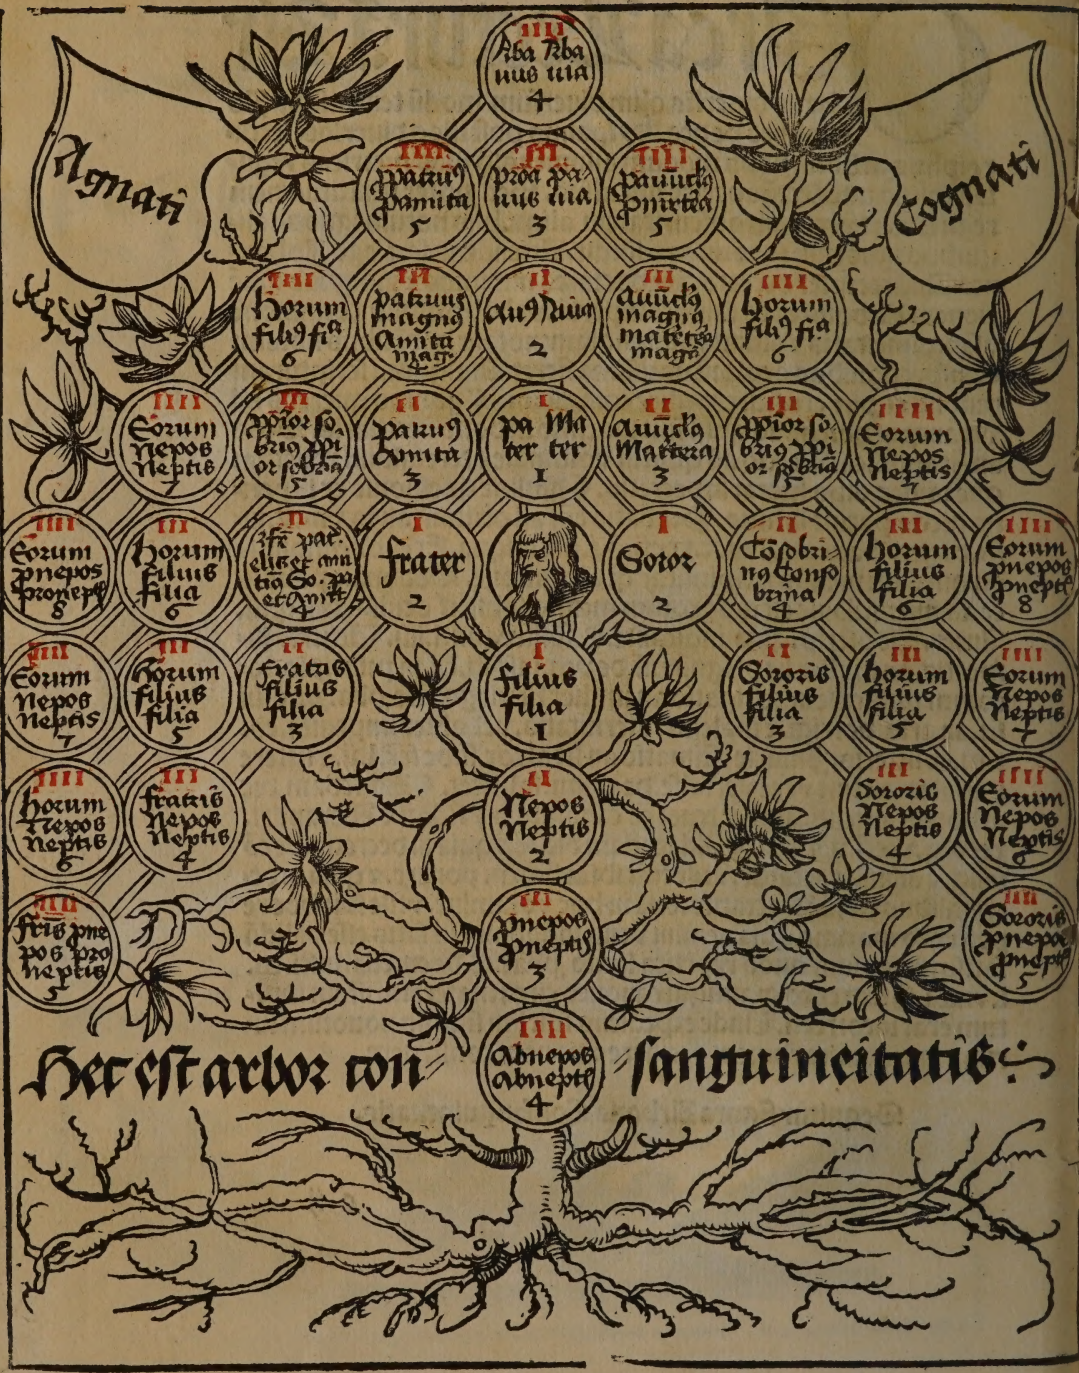 Agnati
Cognati
IIII
Aba Aba
uus uia
4
IIII
ppatruꝰ
pamita
5
III
proa pa-
uus uia
3
IIII
pauūclꝰ
pm̄rtēa
5
IIII
Horum
filiꝰ fia
6
III
patruus
magnꝰ
Amita
mag
4
II
Auꝰ Auia
2
III
Auūclꝰ
magnꝰ
matētēa
magͣ
IIII
horum
filiꝰ fia
6
IIII
Eorum
Nepos
Neptis
7
III
ꝓpīor so-
brinꝰ ꝓpi
or sobrīa
5
II
patruꝰ
Amita
3
I
pa Ma
ter ter
1
II
Auūclꝰ
Matrtera
3
III
ꝓpīor so-
brinꝰ ꝓpi
or sobrīa
5
IIII
Eorum
Nepos
Neptis
7
IIII
Eorum
pnepos
pronept
8
III
Horum
filius
filia
6
II
frē pat.
elisꝫ et ami
tiꝰ So. pa
et Amit
4
I
frater
2
I
Soror
2
II
Cōsobri-
nꝰ Conso
brina
4
III
horum
filius
filia
6
IIII
Eorum
pnepos
pnept
8
IIII
Eorum
Nepos
Neptis
7
III
horum
filius
filia
5
II
fratris
filius
filia
3
I
filius
filia
1
II
Sororis
filius
filia
3
III
horum
filius
filia
5
IIII
Eorum
Nepos
Neptis
7
IIII
horum
Nepos
Neptis
6
III
fratris
Nepos
Neptis
4
II
Nepos
Neptis
2
III
Sororis
Nepos
Neptis
4
IIII
Eorum
Nepos
Neptis
6
IIII
fr̄is pne
pos pro
neptis
5
III
pnepos
pneptis
3
IIII
Sororis
pnepo
pnept
5
IIII
Abnepos
Abnept
4
Hec est arbor con-
-sanguineitatis